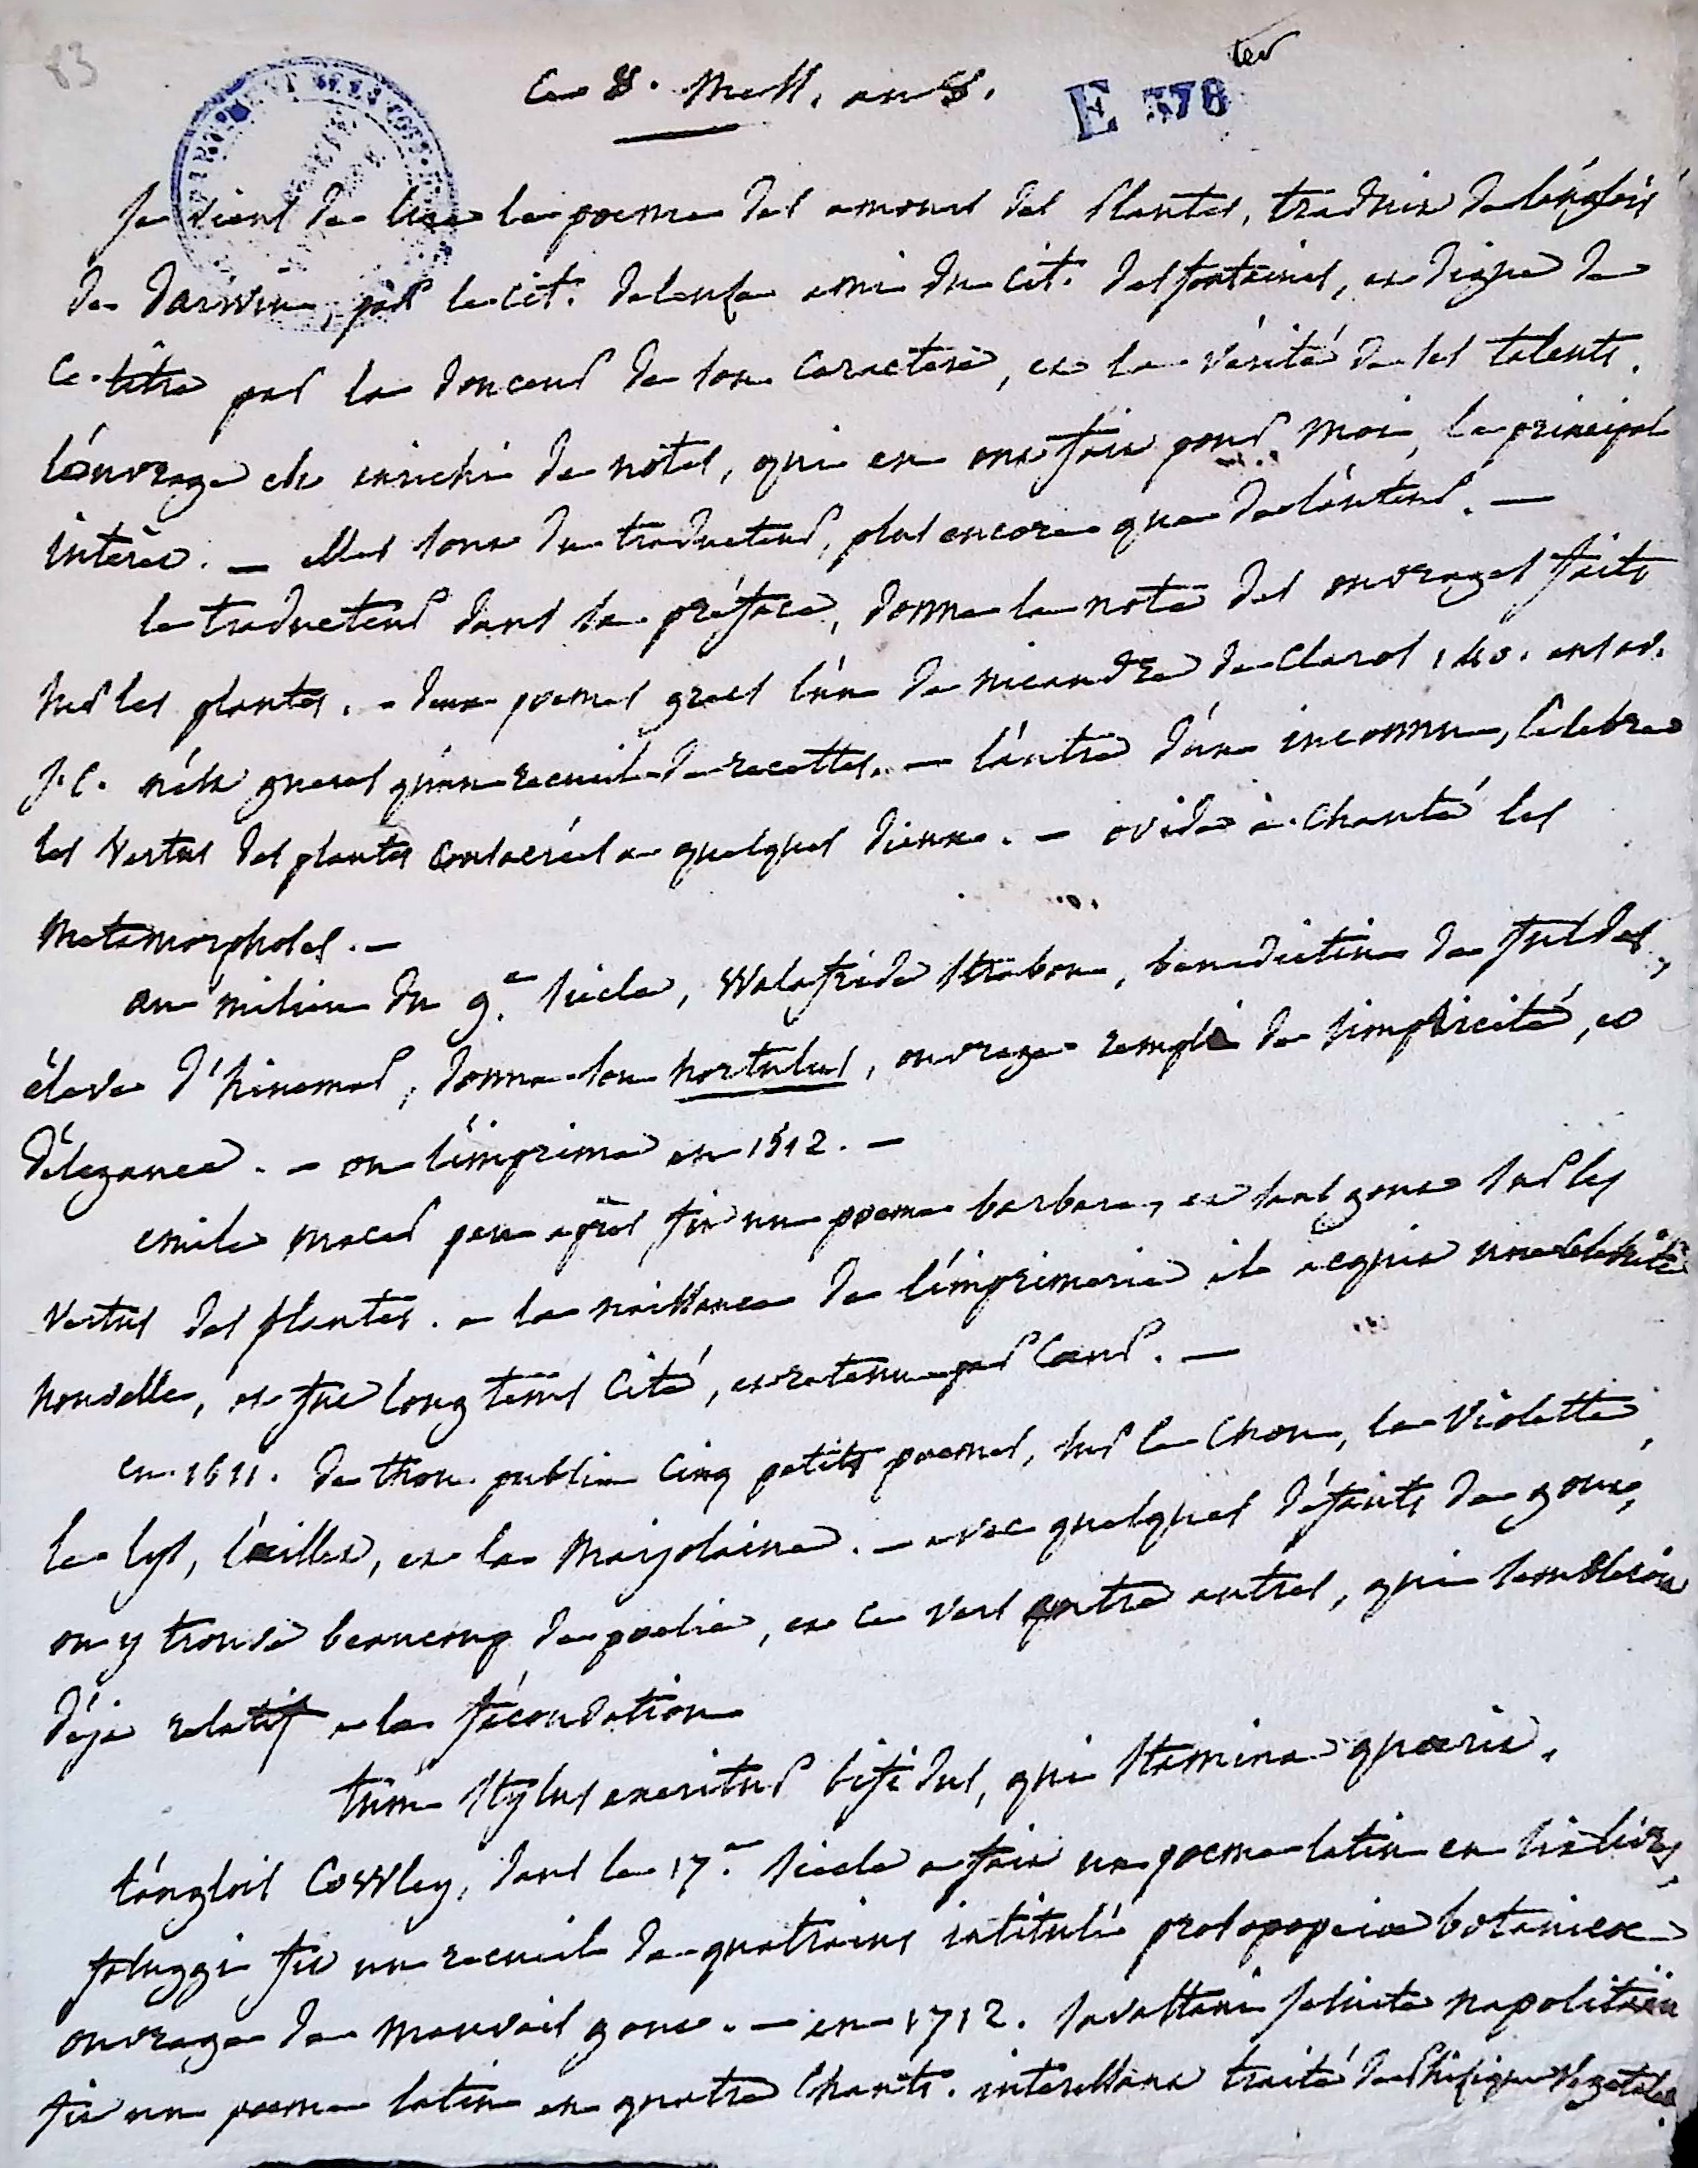 83
Ce 8. Mess. an 8.
E 378 ter
je viens de lire le poeme des amours des plantes, traduit de l'anglais
de darwin, par le cit. deleuse ami du cit. desfontaines, et digne de
ce titre par la douceur de son caractere, et la vérité de ses talents.
l'ouvrage est enrichi de notes, qui en ont fait pour moi, le principal
intérèt. — elles sont du traducteur, plus encore que de l'auteur. —
le traducteur dans sa préface, donne la note des ouvrages faits
sur les plantes. - deux poemes grecs l'un de nicandre de claros 140. ans av.
J.C. n'est gueres qu'un recueil de recettes. — l'autre d'un inconnu, celebre
les vertus des plantes consacrées a quelques dieux. — ovide a chanté les
metamorphoses. —
au milieu du 9.e siecle, Walafride Strabon, benedictin de fuldes,
éleve d'hincmar, donna son hortulus, ouvrage rempli de simplicité, et
d'élegance. — on l'imprima en 1512. —
emile macer peu après fit un poeme barbare, et sans gout sur les
vertus des plantes. a la naissance de l'imprimerie il acquit une célébrité
nouvelle, et fut long tems cité, et retenu par coeur. —
en 1611. de thou publia cinq petits poemes, sur le chou, la violette,
le lys, l'oeillet, et la marjolaine. — avec quelques défauts de gout,
on y trouve beaucoup de poesie, et ce vers entre autres, qui sembleroit
déja relatif a la fécondation
tùm stylus exeritur bifidus, qui stamina quaerit.
l'anglois Cowley, dans le 17.e siecle a fait un poeme latin en six livres,
faluggi fit un recueil de quatrains intitulé prosopopeiae botanicae
ouvrage de mauvais gout. — en 1712. savastani jesuite napolitain
fit un poeme latin en quatre chants. interessant traité de Phisique végetale.